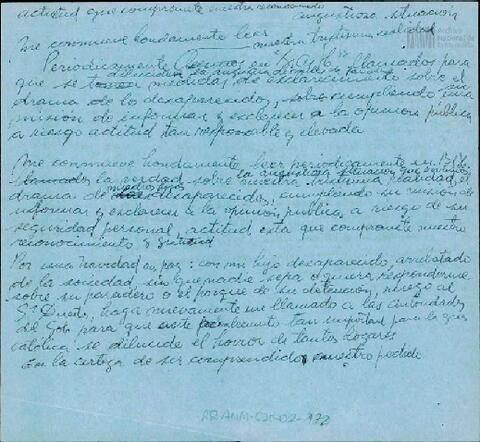 actitud que compromete nuestro reconocimiento
angustiosa situación
Me conmueve hondamente leer nuestra tristísima realidad
Periodicamente en B.A.H. llamados para
que se tomen medidas, de esclarecimiento sobre el
drama de los desaparecidos, sobre cumpliendo su
misión de informar y esclarecer a la opinión pública
a riesgo actitud tan responsable y elevada
Me conmueve hondamente leer periodicamente en B.A.H.
llamados la verdad sobre nuestra tristísima realidad, el
la angustiosa situación que
drama de nuestros hijos desaparecidos, cumpliendo su misión de
informar y esclarecer a la opinión pública a riesgo de su
seguridad personal, actitud esta que compromete nuestro
reconocimiento y gratitud
Por una Navidad en paz: con mi hijo desaparecido, arrebatado
de la sociedad, sin que nadie sepa o quiera responderme
sobre su paradero o el porque de su detención, ruego al
Sr Director, haga nuevamente un llamado a las autoridades
de Gob para que este tan importante para la grey
católica se dilucide el horror de tantos hogares
En la certeza de ser comprendido nuestro pedido
AR-ANM-
Archivo
Nacional de
la Memoria